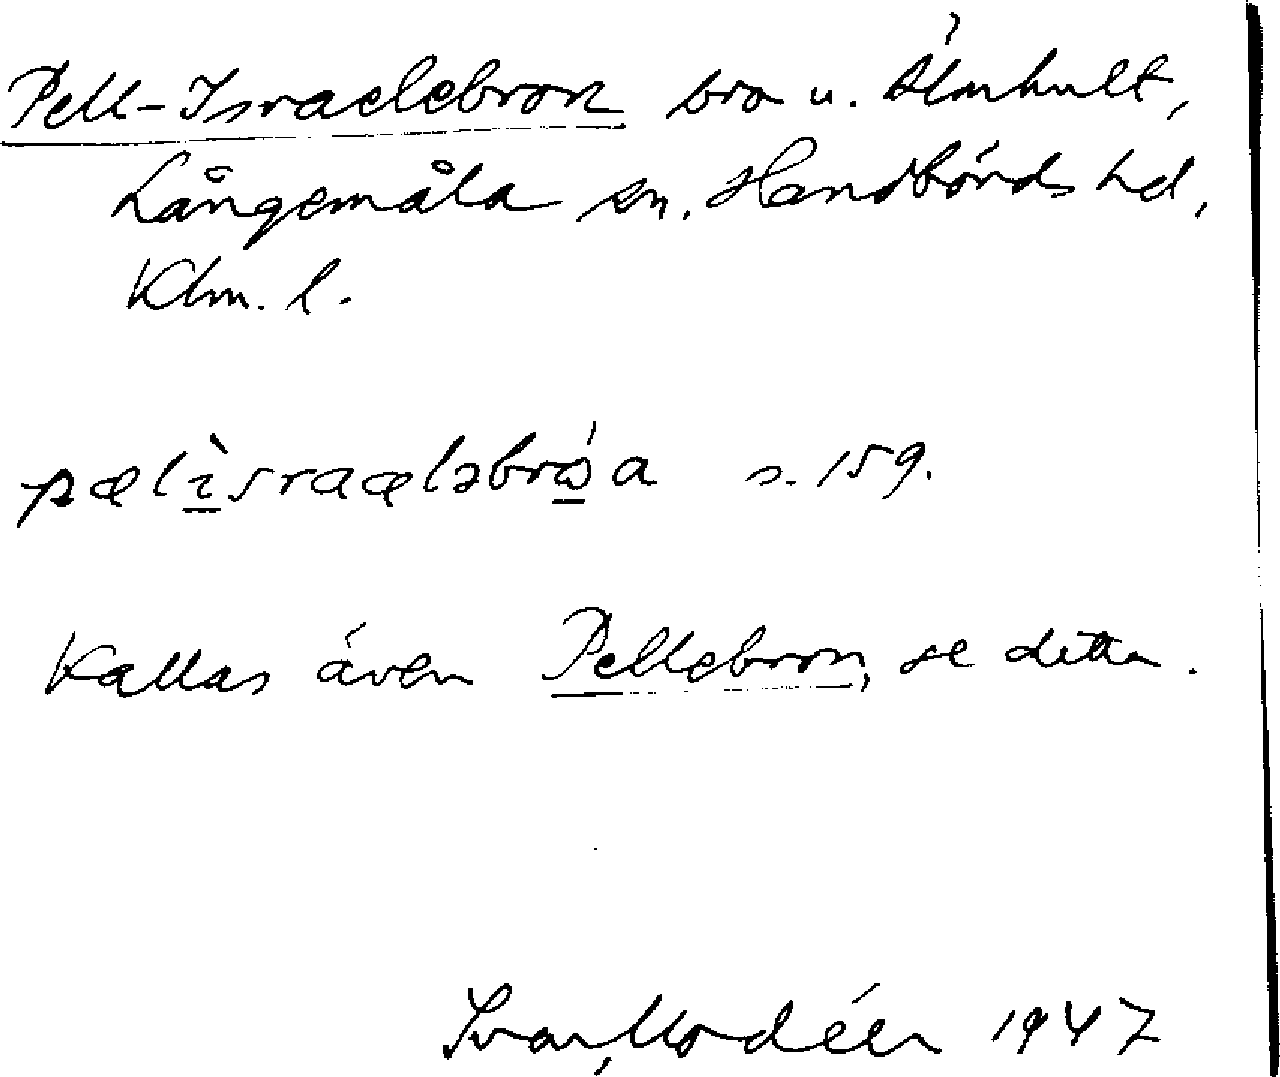 Pell-Israelebron bro u. Älmhult,
Långemåla sn, Handbörds hd,
Klm. l.
pælìsraæləbrώa s. 159.
Kallas även Pellebron, se detta.
Ivar Modéer 1947